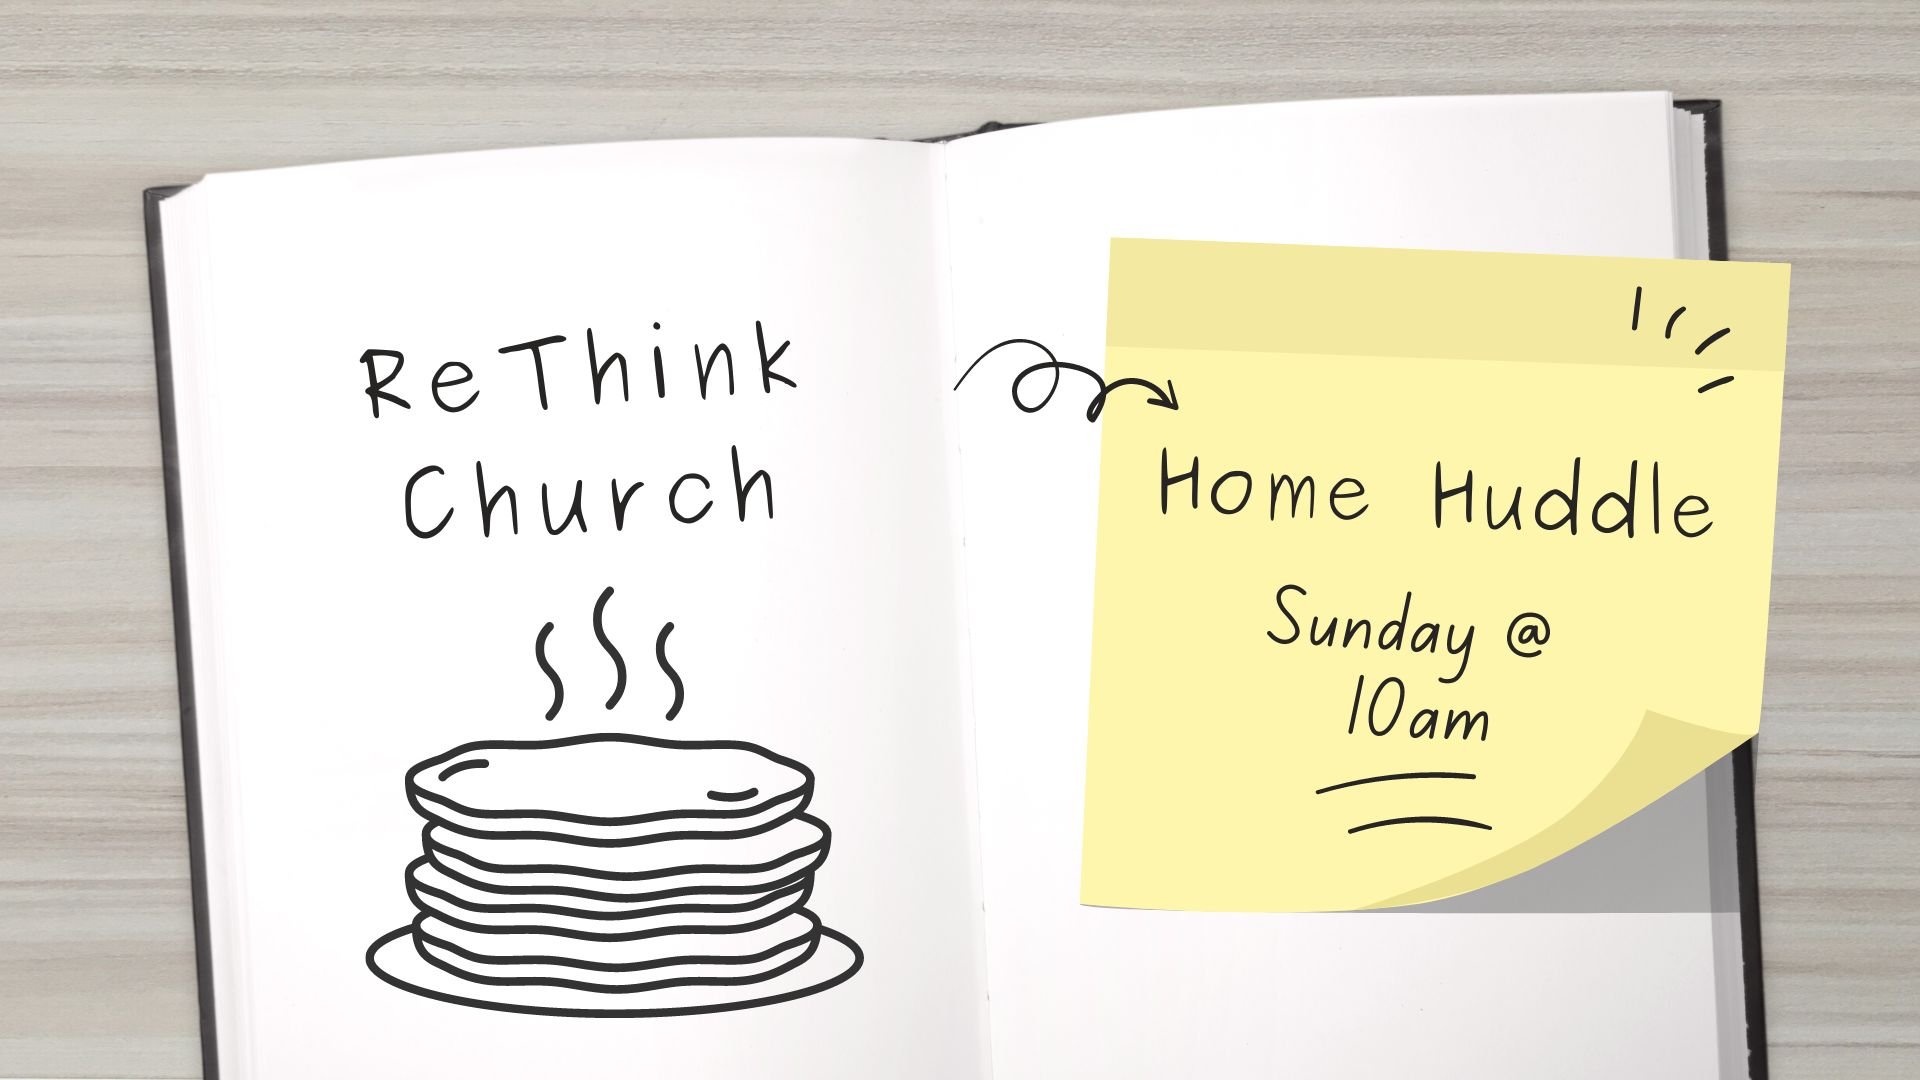 ReThink
Church
Home Huddle
Sunday @
10am